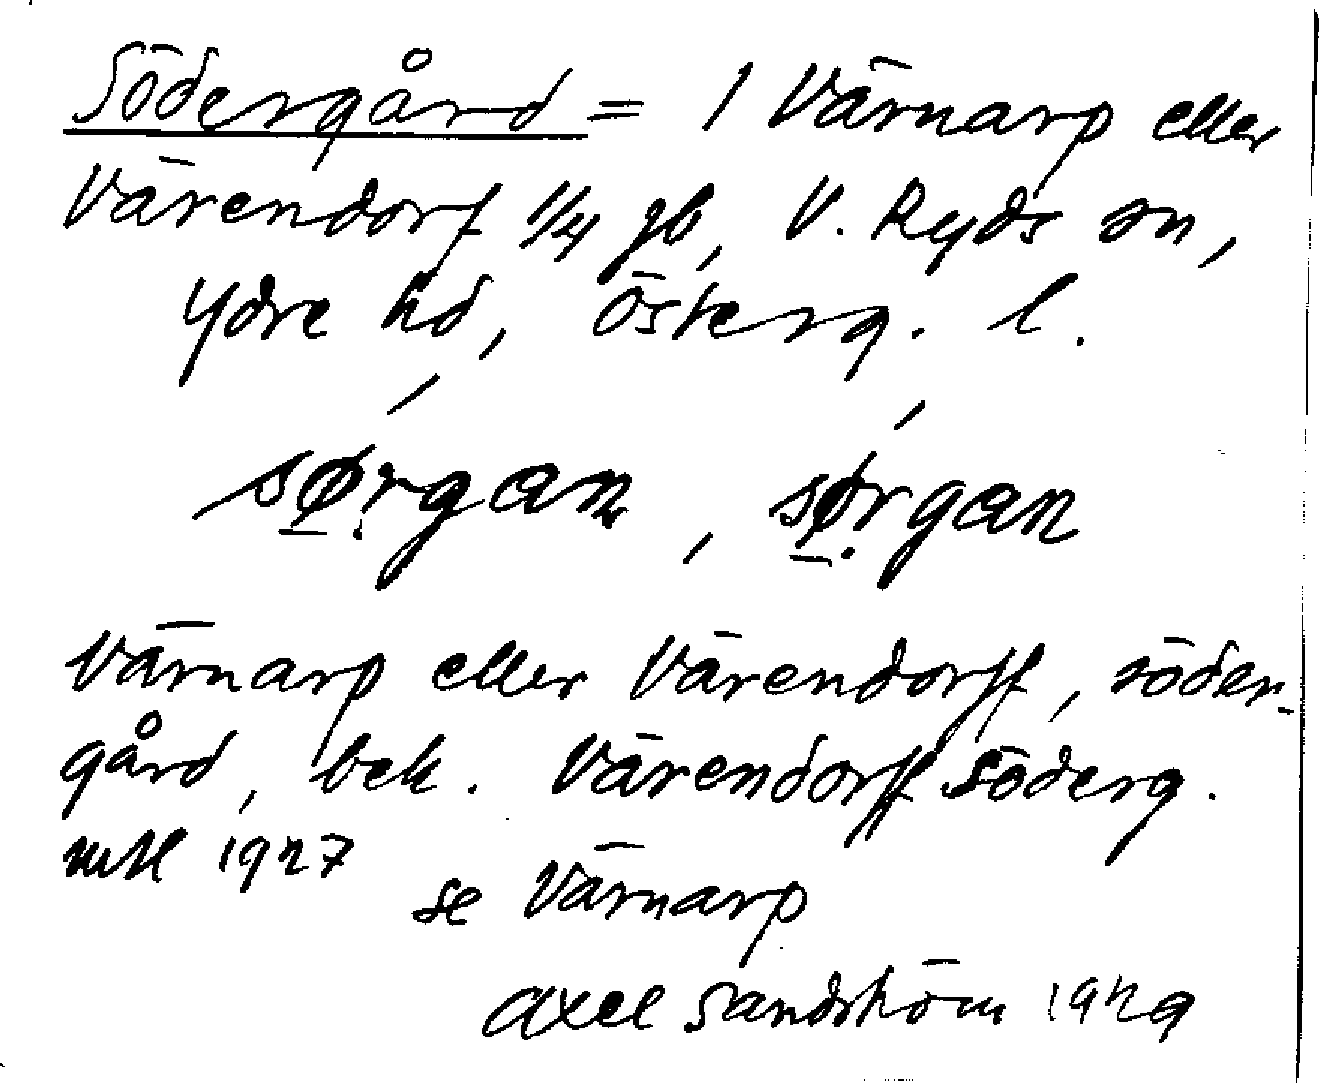 Södergård = 1 Värnarp eller
Värendorf 1/4 gb, V. Ryds sn,
Ydre hd, Österg. l.
sørgan, sørgan
Värnarp eller Värendorff, söder-
gård, bek. Värendorff Söderg.
1927
se Värnarp
Axel Sandström 1929